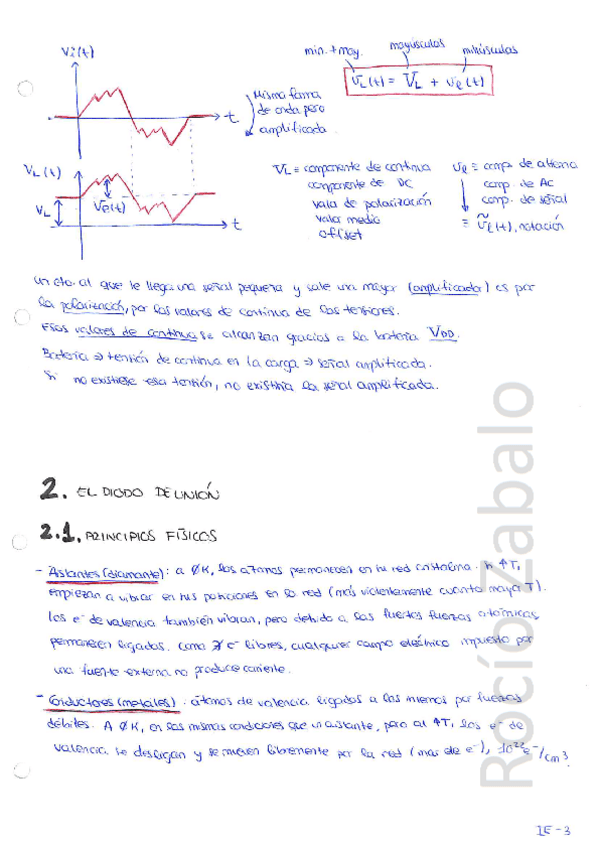 vi(t)
t
Misma forma
de onda pero
amplificada
min. + may.
mayúsculas
minúsculas
vL(t) = VL + vl(t)
VL(t)
VL
vl(t)
t
VL ≡ componente de continua
componente de DC
valor de polarización
valor medio
offset
vl ≡ comp. de alterna
comp. de AC
comp. de señal
≡ ṽl(t), notación
un cto. al que le llega una señal pequeña y sale una mayor (amplificada) es por
la polarización, por los valores de continua de las tensiones.
Esos valores de continua se alcanzan gracias a la batería VDD.
Batería ⇒ tensión de continua en la carga ⇒ señal amplificada.
Si no existiese esa tensión, no existiría la señal amplificada.
2. EL DIODO DE UNIÓN
2.1. PRINCIPIOS FÍSICOS
- Aislantes (diamante): a 0K, los átomos permanecen en su red cristalina. Si ↑T,
empiezan a vibrar en sus posiciones en la red (más violentamente cuanto mayor T).
Los e⁻ de valencia también vibran, pero debido a las fuertes fuerzas atómicas,
permanecen ligados. Como ∄ e⁻ libres, cualquier campo eléctrico impuesto por
una fuente externa no produce corriente.
- Conductores (metales): átomos de valencia ligados a los mismos por fuerzas
débiles. A 0K, en las mismas condiciones que un aislante, pero al ↑T, los e⁻ de
valencia se desligan y se mueven libremente por la red (mar de e⁻), 10²² e⁻/cm³.
Rocío Zabalo
IE-3